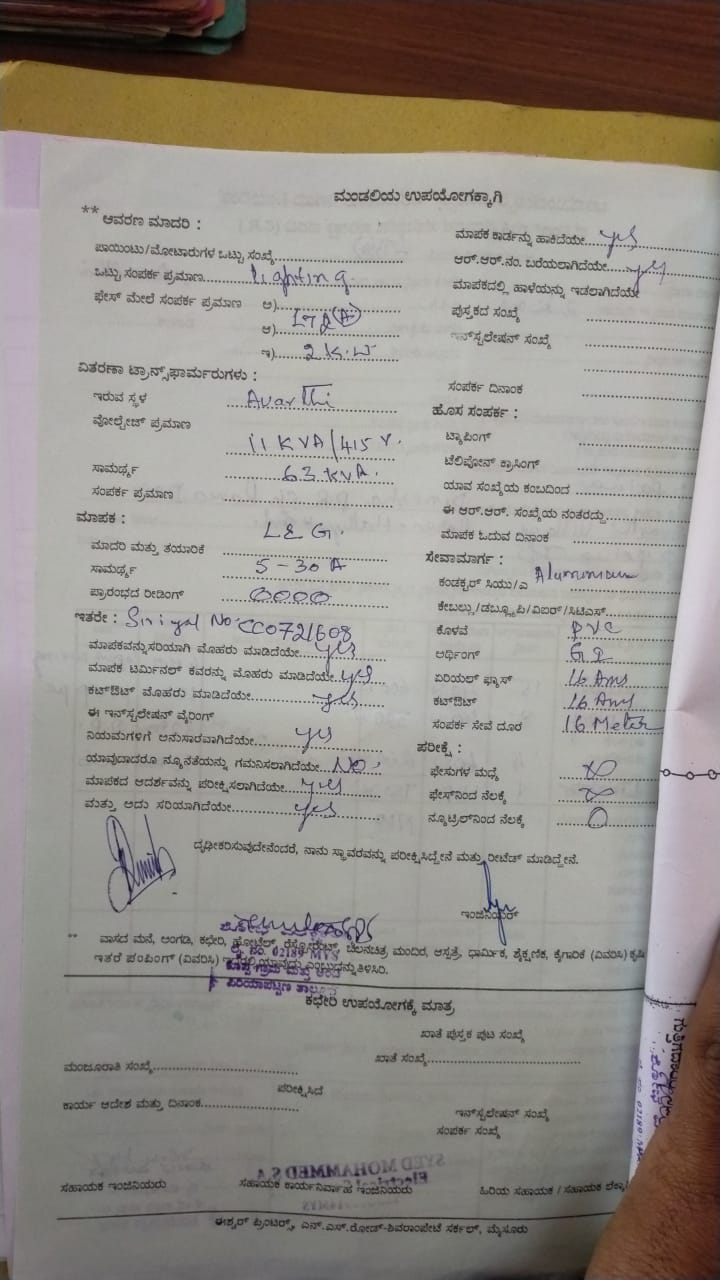 ಮಂಡಲಿಯ ಉಪಯೋಗಕ್ಕಾಗಿ
** ಆವರಣ ಮಾದರಿ :
ಪಾಯಿಂಟು/ಮೋಟಾರುಗಳ ಒಟ್ಟು ಸಂಖ್ಯೆ
ಒಟ್ಟು ಸಂಪರ್ಕ ಪ್ರಮಾಣ lighting
ಫೇಸ್ ಮೇಲೆ ಸಂಪರ್ಕ ಪ್ರಮಾಣ ಅ)
ಆ)
ಇ) 2 K.W
ವಿತರಣಾ ಟ್ರಾನ್ಸ್‌ಫಾರ್ಮರುಗಳು :
ಇರುವ ಸ್ಥಳ Avarthi
ವೋಲ್ಟೇಜ್ ಪ್ರಮಾಣ 11 KVA/415 V.
ಸಾಮರ್ಥ್ಯ 63 KVA.
ಸಂಪರ್ಕ ಪ್ರಮಾಣ
ಮಾಪಕ :
ಮಾದರಿ ಮತ್ತು ತಯಾರಿಕೆ L & G.
ಸಾಮರ್ಥ್ಯ 5-30 A
ಪ್ರಾರಂಭದ ರೀಡಿಂಗ್ 0000
ಇತರೇ : Siriyal No: CC0721608
ಮಾಪಕವನ್ನು ಸರಿಯಾಗಿ ಮೊಹರು ಮಾಡಿದೆಯೇ yes
ಮಾಪಕ ಟರ್ಮಿನಲ್ ಕವರನ್ನು ಮೊಹರು ಮಾಡಿದೆಯೇ yes
ಕಟ್‌ಔಟ್ ಮೊಹರು ಮಾಡಿದೆಯೇ yes
ಈ ಇನ್‌ಸ್ಟಲೇಷನ್ ವೈರಿಂಗ್
ನಿಯಮಗಳಿಗೆ ಅನುಸಾರವಾಗಿದೆಯೇ yes
ಯಾವುದಾದರೂ ನ್ಯೂನತೆಯನ್ನು ಗಮನಿಸಲಾಗಿದೆಯೇ No.
ಮಾಪಕದ ಆದರ್ಶವನ್ನು ಪರೀಕ್ಷಿಸಲಾಗಿದೆಯೇ yes
ಮತ್ತು ಅದು ಸರಿಯಾಗಿದೆಯೇ yes
ಮಾಪಕ ಕಾರ್ಡನ್ನು ಹಾಕಿದೆಯೇ yes
ಆರ್.ಆರ್.ನಂ. ಬರೆಯಲಾಗಿದೆಯೇ yes
ಮಾಪಕದಲ್ಲಿ ಹಾಳೆಯನ್ನು ಇಡಲಾಗಿದೆಯೇ
ಪುಸ್ತಕದ ಸಂಖ್ಯೆ
ಇನ್‌ಸ್ಟಲೇಷನ್ ಸಂಖ್ಯೆ
ಸಂಪರ್ಕ ದಿನಾಂಕ
ಹೊಸ ಸಂಪರ್ಕ :
ಟ್ಯಾಪಿಂಗ್
ಟೆಲಿಪೋನ್ ಕ್ರಾಸಿಂಗ್
ಯಾವ ಸಂಖ್ಯೆಯ ಕಂಬದಿಂದ
ಈ ಆರ್.ಆರ್. ಸಂಖ್ಯೆಯ ನಂತರದ್ದು
ಮಾಪಕ ಓದುವ ದಿನಾಂಕ
ಸೇವಾಮಾರ್ಗ :
ಕಂಡಕ್ಟರ್ ಸಿಯು/ಎ Aluminium
ಕೇಬಲ್ಲು/ಡಬ್ಲ್ಯೂಪಿ/ವಿಐರ್/ಸಿಟಿಎಸ್
ಕೊಳವೆ PVC
ಅರ್ಥಿಂಗ್ GI
ಏರಿಯಲ್ ಫ್ಯೂಸ್ 16 Ams
ಕಟ್‌ಔಟ್ 16 Ams
ಸಂಪರ್ಕ ಸೇವೆ ದೂರ 16 Meter
ಪರೀಕ್ಷೆ :
ಫೇಸುಗಳ ಮಧ್ಯೆ ∞
ಫೇಸ್‌ನಿಂದ ನೆಲಕ್ಕೆ ∞
ನ್ಯೂಟ್ರಿಲ್‌ನಿಂದ ನೆಲಕ್ಕೆ 0
ದೃಢೀಕರಿಸುವುದೇನೆಂದರೆ, ನಾನು ಸ್ಥಾವರವನ್ನು ಪರೀಕ್ಷಿಸಿದ್ದೇನೆ ಮತ್ತು ರೀಟೆಡ್ ಮಾಡಿದ್ದೇನೆ.
ಇಂಜಿನಿಯರ್
** ವಾಸದ ಮನೆ, ಅಂಗಡಿ, ಕಛೇರಿ, ಹೋಟೆಲ್, ರೆಸ್ಟೋರೆಂಟ್, ಚಲನಚಿತ್ರ ಮಂದಿರ, ಆಸ್ಪತ್ರೆ, ಧಾರ್ಮಿಕ, ಶೈಕ್ಷಣಿಕ, ಕೈಗಾರಿಕೆ (ವಿವರಿಸಿ) ಕೃಷಿ
ಇತರೆ ಪಂಪಿಂಗ್ (ವಿವರಿಸಿ) ಇದರಲ್ಲಿ ಯಾವುದು ಎಂಬುದನ್ನು ತಿಳಿಸಿರಿ.
No. 02189 MYS
ಪಿರಿಯಾಪಟ್ಟಣ ತಾಲ್ಲೂಕು
ಕಛೇರಿ ಉಪಯೋಗಕ್ಕೆ ಮಾತ್ರ
ಖಾತೆ ಪುಸ್ತಕ ಪುಟ ಸಂಖ್ಯೆ
ಮಂಜೂರಾತಿ ಸಂಖ್ಯೆ
ಖಾತೆ ಸಂಖ್ಯೆ
ಪರೀಕ್ಷಿಸಿದೆ
ಕಾರ್ಯ ಆದೇಶ ಮತ್ತು ದಿನಾಂಕ
ಇನ್‌ಸ್ಟಲೇಷನ್ ಸಂಖ್ಯೆ
ಸಂಪರ್ಕ ಸಂಖ್ಯೆ
SYED MOHAMMED S A
ಸಹಾಯಕ ಇಂಜಿನಿಯರು ಸಹಾಯಕ ಕಾರ್ಯನಿರ್ವಾಹ ಇಂಜಿನಿಯರು ಹಿರಿಯ ಸಹಾಯಕ / ಸಹಾಯಕ
ಈಶ್ವರ್ ಪ್ರಿಂಟರ್ಸ್, ಎನ್.ಎಸ್.ರೋಡ್-ಶಿವರಾಂಪೇಟೆ ಸರ್ಕಲ್, ಮೈಸೂರು